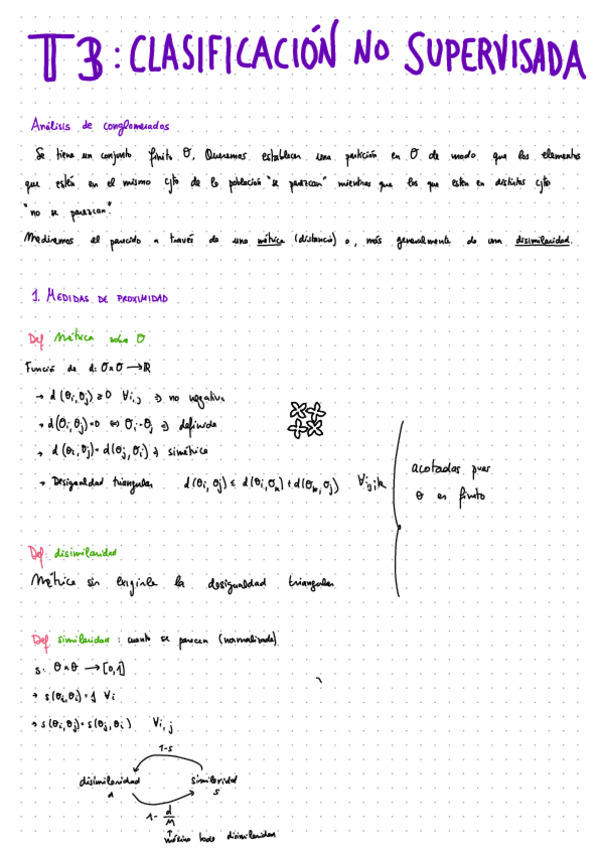 T3: CLASIFICACIÓN NO SUPERVISADA
Análisis de conglomerados
Se tiene un conjunto finito O. Queremos establecer una partición en O de modo que los elementos
que estén en el mismo cjto de la población "se parezcan" mientras que los que estén en distintos cjto
"no se parezcan."
Mediremos el parecido a través de una métrica (distancia) o, más generalmente de una disimilaridad.
1. MEDIDAS DE PROXIMIDAD
Def Métrica sobre O
Función de d: O×O → ℝ
→ d(θi, θj) ≥ 0 ∀i,j ⇒ no negativa
→ d(θi, θj) = 0 ⇔ θi = θj ⇒ definida
→ d(θi, θj) = d(θj, θi) ⇒ simétrica
→ Desigualdad triangular d(θi, θj) ≤ d(θi, θk) + d(θk, θj) ∀i,j,k
acotadas pues
θ es finito
Def: disimilaridad
Métrica sin exigirle la desigualdad triangular
Def similaridad: cuanto se parecen (normalizada)
s: θ×θ → [0,1]
→ s(θi, θi) = 1 ∀i
→ s(θi, θj) = s(θj, θi) ∀i,j
1-s
disimilaridad similaridad
d s
1 - d/M
↑
máximo todas disimilaridades